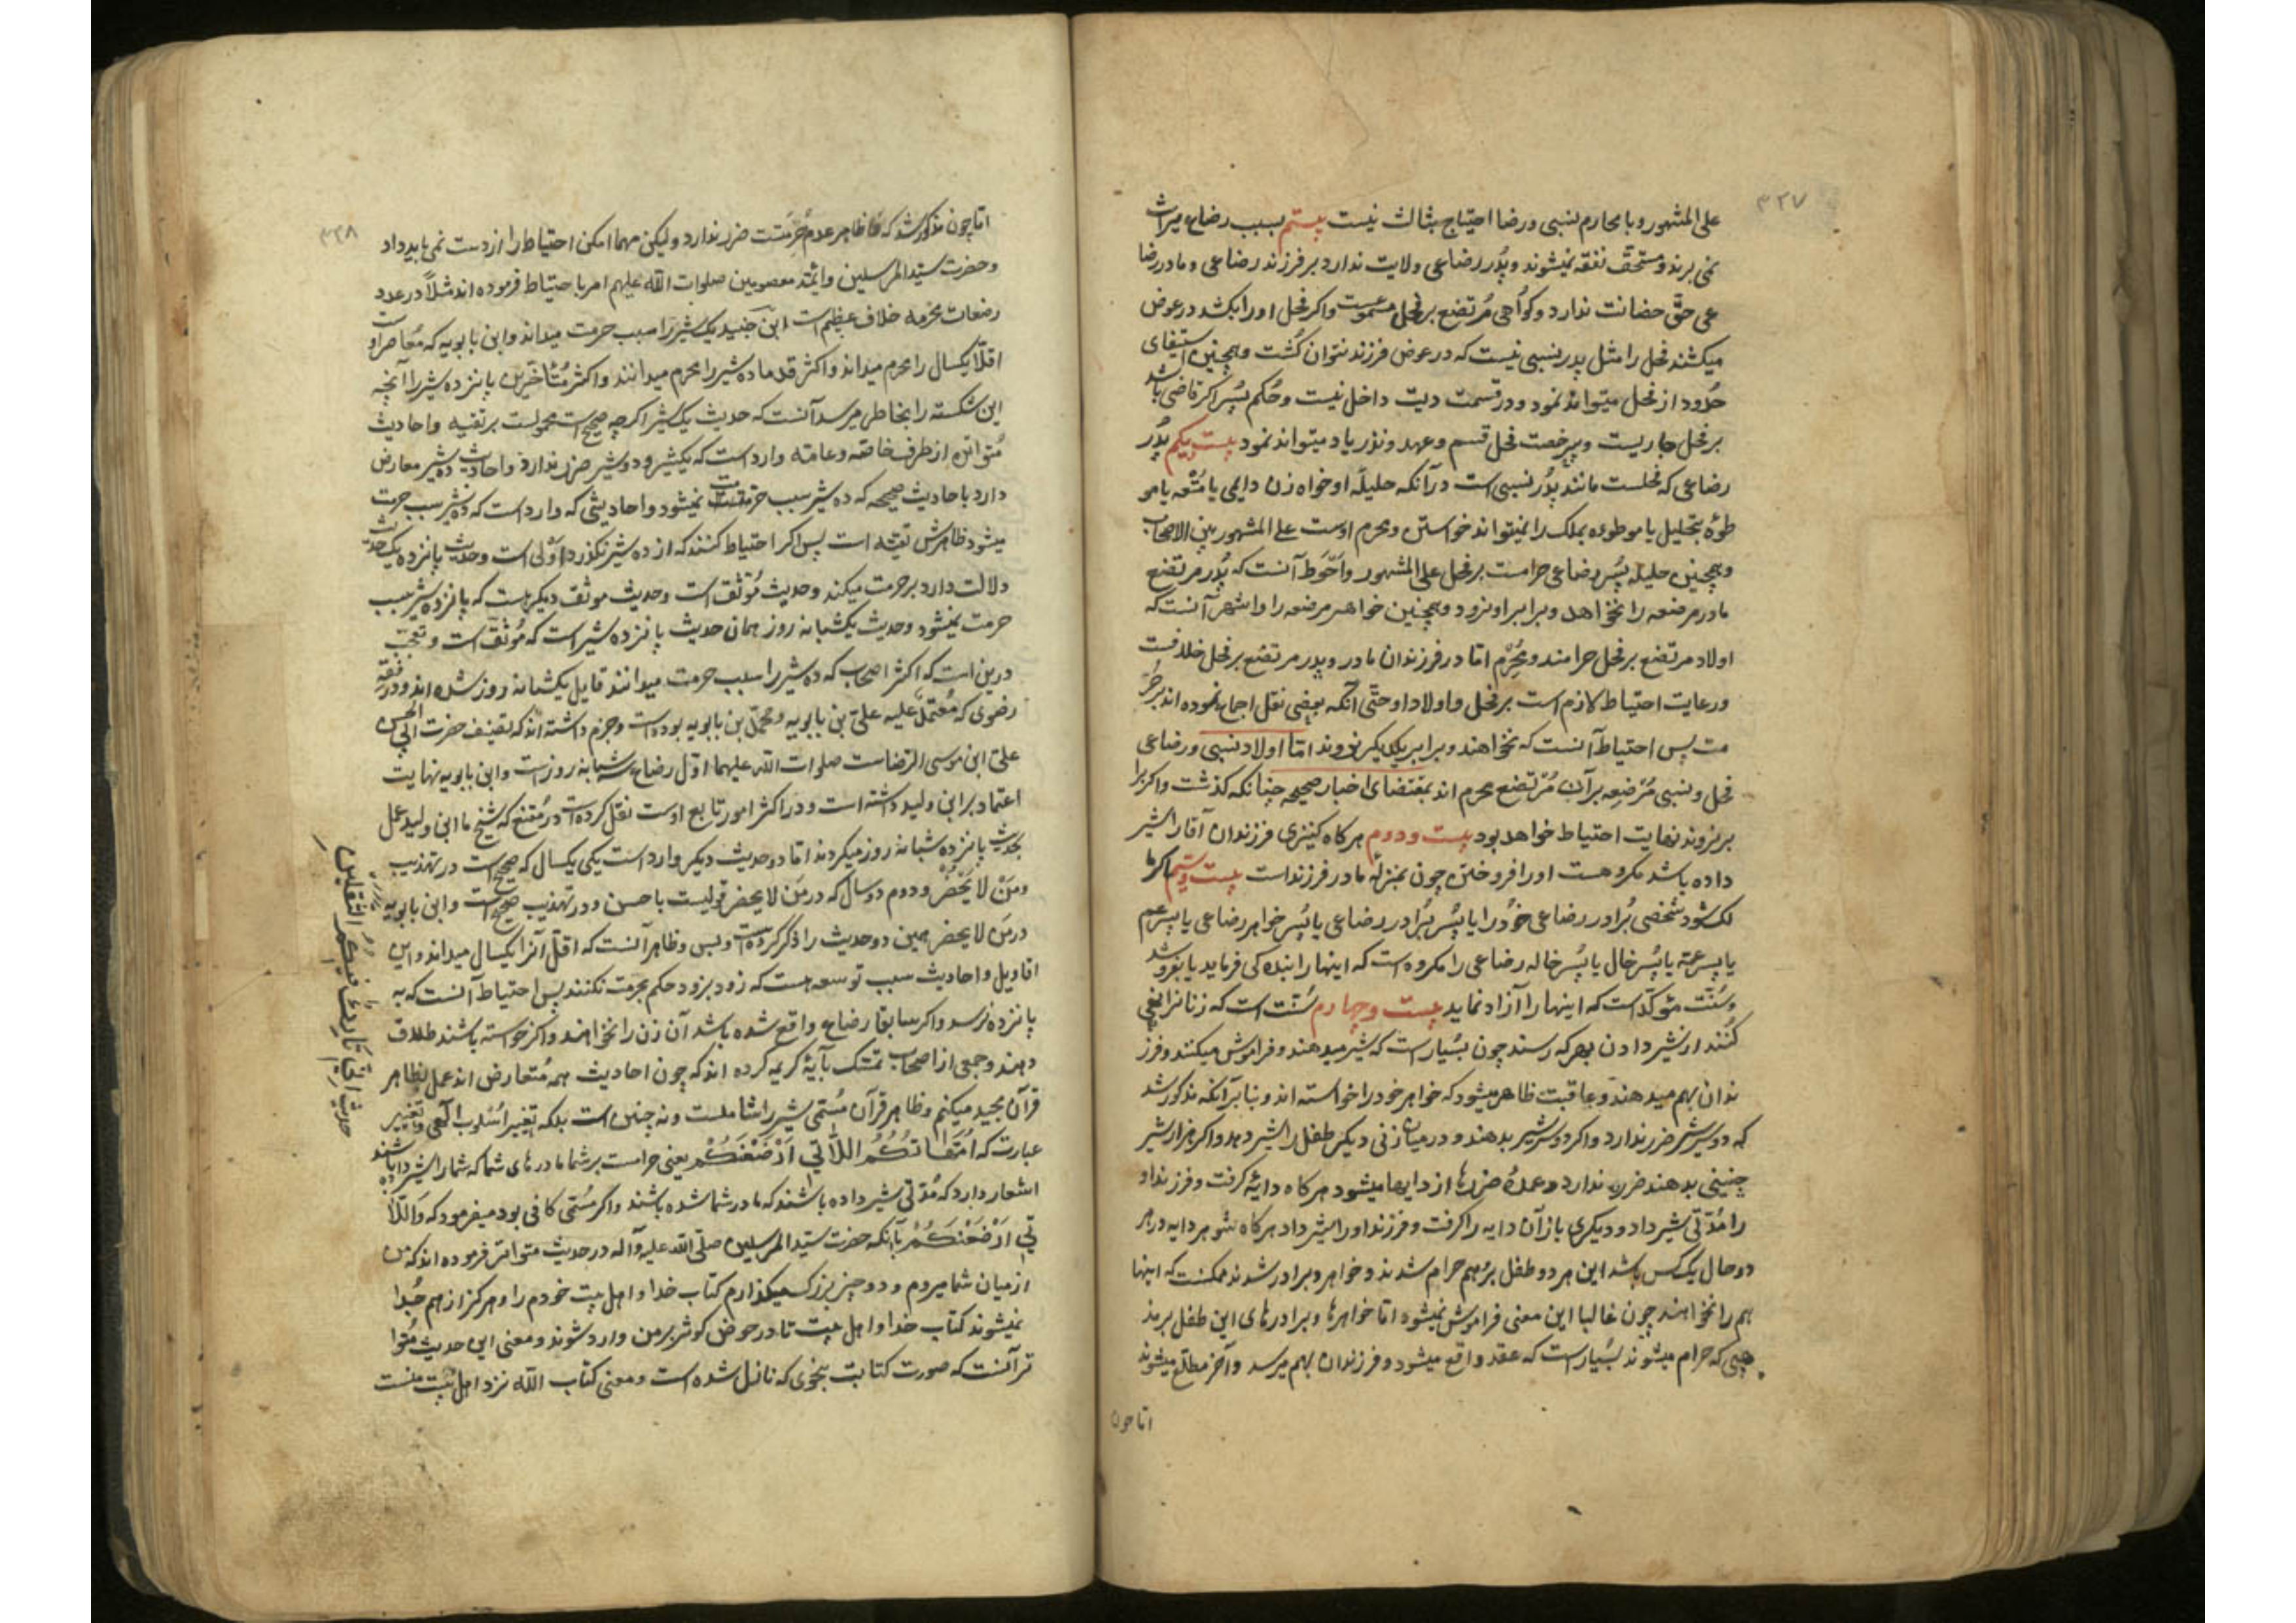 ۳۲۷
علی المشهور و با محارم نسبی و رضا احتیاج بثالث نیست بیستم بسبب رضاع میراث
نمی برند و مستحق نفقه نمیشوند و پدر رضاعی ولایت ندارد بر فرزند رضاعی و مادر رضا
عی حق حضانت ندارد و کواهی مرتضع بر فحل مسموعست و اکر فحل او را بکشد در عوض
میکشند فحل را مثل پدر نسبی نیست که در عوض فرزند نتوان کشت و همچنین استیفای
حدود از فحل میتواند نمود و در قسمت دیت داخل نیست و حکم پسر اکر قاضی باشد
بر فحل جاریست و بیرخصت فحل قسم و عهد و نذر یاد میتواند نمود بیست یکم پدر
رضاعی که فحلست مانند پدر نسبی است در آنکه حلیله او خواه زن دایمی یا متعه یا مو
طوءه بتحلیل یا موطوءه بملک را نمیتواند خواستن و محرم اوست علی المشهور بین الاصحاب
و همچنین حلیله پسر رضاعی حرامست بر فحل علی المشهور و احوط آنست که پدر مرتضع
مادر مرضعه را نخواهد و برابر او نرود و همچنین خواهر مرضعه را و اشهر آنست که
اولاد مرتضع بر فحل حرامند و محرم اما در فرزندان مادر و پدر مرتضع بر فحل خلافست
و رعایت احتیاط لازم است بر فحل و اولاد او حتی آنکه بعضی نقل اجماع نموده اند بر حر
مت پس احتیاط آنست که نخواهند و برابر یکدیکر نروند اما اولاد نسبی و رضاعی
فحل و نسبی مرضعه بر آن مرتضع محرم اند بمقتضای اخبار صحیحه چنانکه کذشت و اکر برا
بر نروند نهایت احتیاط خواهد بود بیست و دوم هرکاه کنیزی فرزندان آقا را شیر
داده باشد مکروهست او را فروختن چون بمنزله مادر فرزند است بیست و سیم اکر ما
لک شود شخصی برادر رضاعی خود را یا پسر برادر رضاعی یا پسر خواهر رضاعی یا پسر عم
یا پسر عمه یا پسر خال یا پسر خاله رضاعی را مکروه است که اینها را بنده کی فرماید یا بفروشد
و سنت مؤکد است که اینها را آزاد نماید بیست و چهارم سنت است که زنان را نهی
کنند از شیر دادن بهر که رسند چون بسیار است که شیر میدهند و فراموش میکنند و فرز
ندان بهم میدهند و عاقبت ظاهر میشود که خواهر خود را خواسته اند و بنا بر آنکه مذکور شد
که دو سه شیر ضرر ندارد و اکر دو سه شیر بدهند و در میان زنی دیکر طفل را شیر دهد و اکر هزار شیر
چنینی بدهند ضرر ندارد و عمده ضررها از دایه ها میشود هرکاه دایه کرفت و فرزند او
را مدتی شیر داد و دیکری باز آن دایه را کرفت و فرزند او را شیر داد هرکاه شوهر دایه در هر
دو حال یک کس باشد این هر دو طفل بر هم حرام شدند و خواهر و برادر شدند ممکنست که اینها
هم را نخواهند چون غالبا این معنی فراموش نمیشود اما خواهرها و برادرهای این طفل بر مذ
هبی که حرام میشوند بسیار است که عقد واقع میشود و فرزندان بهم میرسد و آخر مطلع میشوند
اما چون
۳۲۸
اما چون مذکور شد که ظاهر عدم حرمتست ضرر ندارد و لیکن مهما امکن احتیاط را از دست نمی باید داد
و حضرت سید المرسلین و ائمه معصومین صلوات الله علیهم امر باحتیاط فرموده اند مثلا در عدد
رضعات محرمه خلاف عظیم است ابن جنید یک شیر را سبب حرمت میداند و ابن بابویه که معاصر اوست
اقلا یکسال را محرم میداند و اکثر قدما ده شیر را محرم میدانند و اکثر متاخرین پانزده شیر را آنچه
این شکسته را بخاطر میرسد آنست که حدیث یک شیر اکرچه صحیح است محمولست بر تقیه و احادیث
متواتره از طرف خاصه و عامه وارد است که یکشیر و دو شیر ضرر ندارد و احادیث ده شیر معارض
دارد باحادیث صحیحه که ده شیر سبب حرمت نمیشود و احادیثی که وارد است که ده شیر سبب حرمت
میشود ظاهرش تقیه است پس اکر احتیاط کنند که از ده شیر نکذرد اولی است و حدیث پانزده یک حدیث
دلالت دارد بر حرمت میکند و حدیث موثق است و حدیث موثق دیکر هست که پانزده شیر سبب
حرمت نمیشود و حدیث یکشبانه روز همان حدیث پانزده شیر است که موثق است و تعجب
درین است که اکثر اصحاب که ده شیر را سبب حرمت میدانند قایل یکشبانه روز شده اند و در فقه
رضوی که معتمد علیه علی بن بابویه و محمد بن بابویه بوده است و جزم داشته اند که تصنیف حضرت ابی الحسن
علی ابن موسی الرضاست صلوات الله علیهما اول رضاع سه شبانه روز است و ابن بابویه نهایت
اعتماد بر ابن ولید داشته است و در اکثر امور تابع اوست نقل کرده است در مقنع که شیخ ما ابن ولید عمل
بحدیث پانزده شبانه روز میکردند اما دو حدیث دیکر وارد است یکی یکسال که صحیح است در تهذیب
و من لا یحضر و دوم دو سال که در من لا یحضر قویست یا حسن و در تهذیب صحیح است و ابن بابویه
در من لا یحضر همین دو حدیث را ذکر کرده است و بس و ظاهر آنست که اقل آنرا یکسال میداند و این
اقاویل و احادیث سبب توسعه هست که زود بزود حکم بحرمت نکنند پس احتیاط آنست که به
پانزده نرسد و اکر سابقا رضاع واقع شده باشد آن زن را نخواهند و اکر خواسته باشند طلاق
دهند و جمعی از اصحاب تمسک بآیه کریمه کرده اند که چون احادیث همه متعارض اند عمل بظاهر
قرآن مجید میکنیم و ظاهر قرآن مسمی شیر را شاملست و نه چنین است بلکه تغییر اسلوب الهی و تغییر
عبارت که امهاتکم اللاتی ارضعنکم یعنی حرامست بر شما مادرهای شما که شما را شیر داده باشند
اشعار دارد که مدتی شیر داده باشند که مادر شما شده باشند و اکر مسمی کافی بود میفرمود که واللا
تی ارضعنکم بآنکه حضرت سید المرسلین صلی الله علیه و آله در حدیث متواتر فرموده اند که من
از میان شما میروم و دو چیز بزرک میکذارم کتاب خدا و اهل بیت خودم را و هرکز از هم جدا
نمیشوند کتاب خدا و اهل بیت تا در حوض کوثر بر من وارد شوند و معنی این حدیث متوا
تر آنست که صورت کتابت بنحوی که نازل شده است و معنی کتاب الله نزد اهل بیت منست
حدیث انی تارک فیکم الثقلین